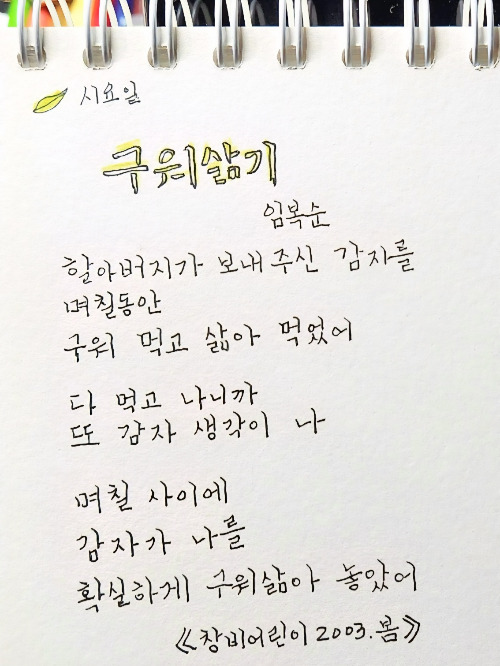 시요일
구워삶기
임복순
할아버지가 보내 주신 감자를
며칠동안
구워 먹고 삶아 먹었어
다 먹고 나니까
또 감자 생각이 나
며칠 사이에
감자가 나를
확실하게 구워삶아 놓았어
《창비어린이 2003.봄》